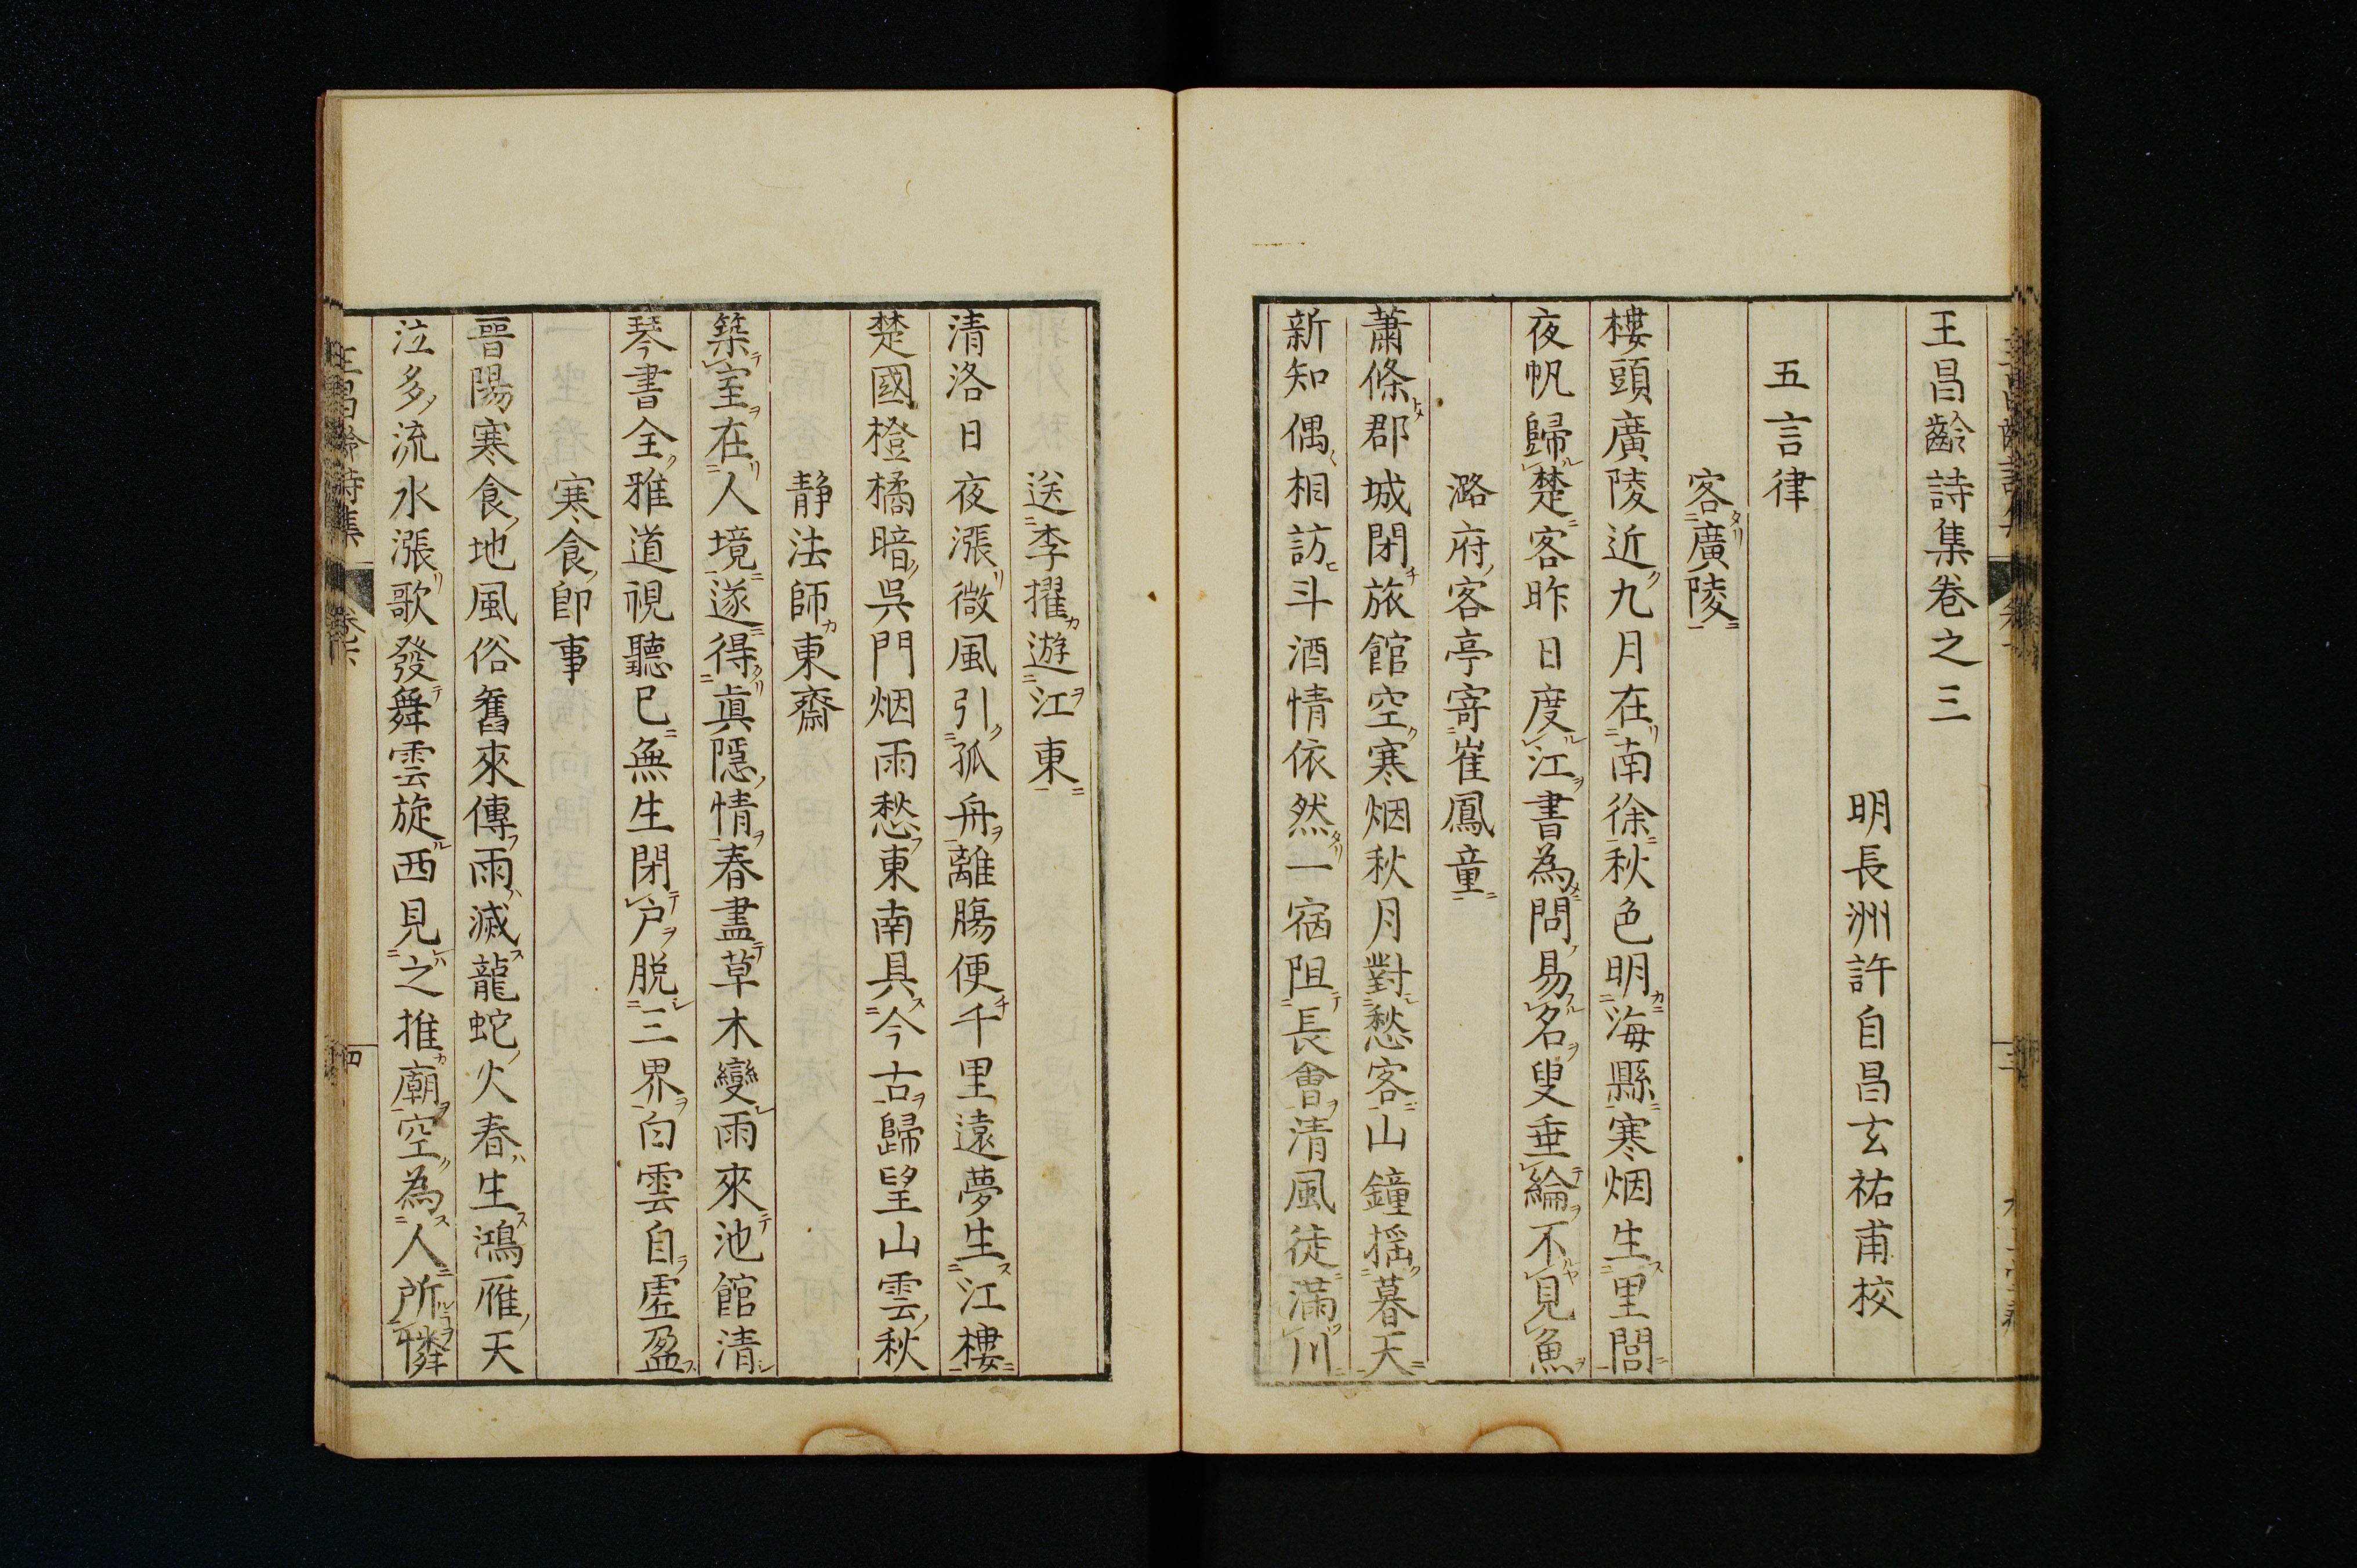 王昌齡詩集卷之三
明長洲許自昌玄祐甫校
五言律
客廣陵
樓頭廣陵近九月在南徐秋色明海縣寒烟生里閭
夜帆歸楚客昨日度江書為問易名叟垂綸不見魚
潞府客亭寄崔鳳童
蕭條郡城閉旅館空寒烟秋月對愁客山鐘摇暮天
新知偶相訪斗酒情依然一宿阻長會清風徒滿川
送李擢遊江東
清洛日夜漲微風引孤舟離腸便千里遠夢生江樓
楚國橙橘暗吳門烟雨愁東南具今古歸望山雲秋
静法師東齋
築室在人境遂得真隱情春盡草木變雨來池館清
琴書全雅道視聽已無生閉户脱三界白雲自虛盈
寒食即事
晉陽寒食地風俗舊來傳雨滅龍蛇火春生鴻雁天
泣多流水漲歌發舞雲旋西見之推廟空為人所憐
王昌齡詩集
四